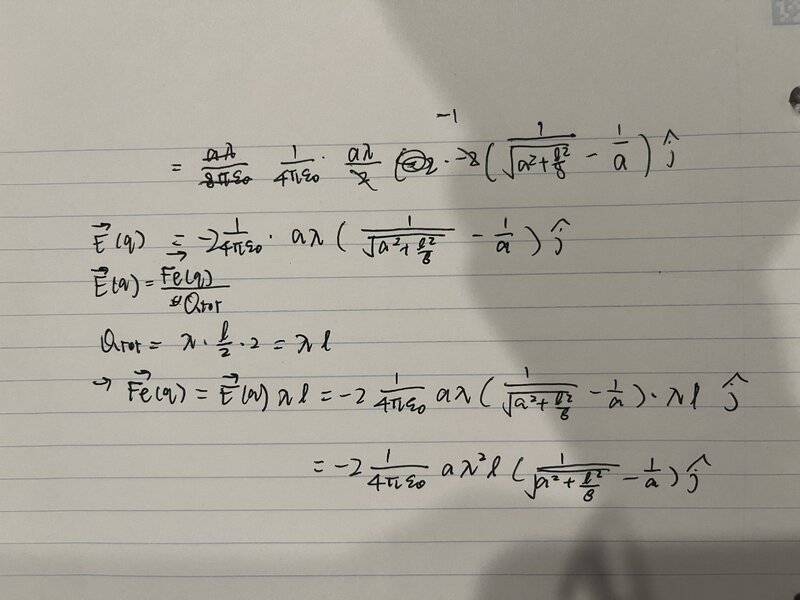 -1
= aλ/8πε₀ 1/4πε₀ · aλ/2 (2 · -8 (1/√(a²+l²/8) - 1/a) ĵ
E⃗(q) = -2 1/4πε₀ · aλ (1/√(a²+l²/8) - 1/a) ĵ
E⃗(q) = F⃗e(q)/Qtot
Qtot = λ · l/2 · 2 = λl
→ F⃗e(q) = E⃗(q) λl = -2 1/4πε₀ aλ (1/√(a²+l²/8) - 1/a) · λl ĵ
= -2 1/4πε₀ aλ²l (1/√(a²+l²/8) - 1/a) ĵ